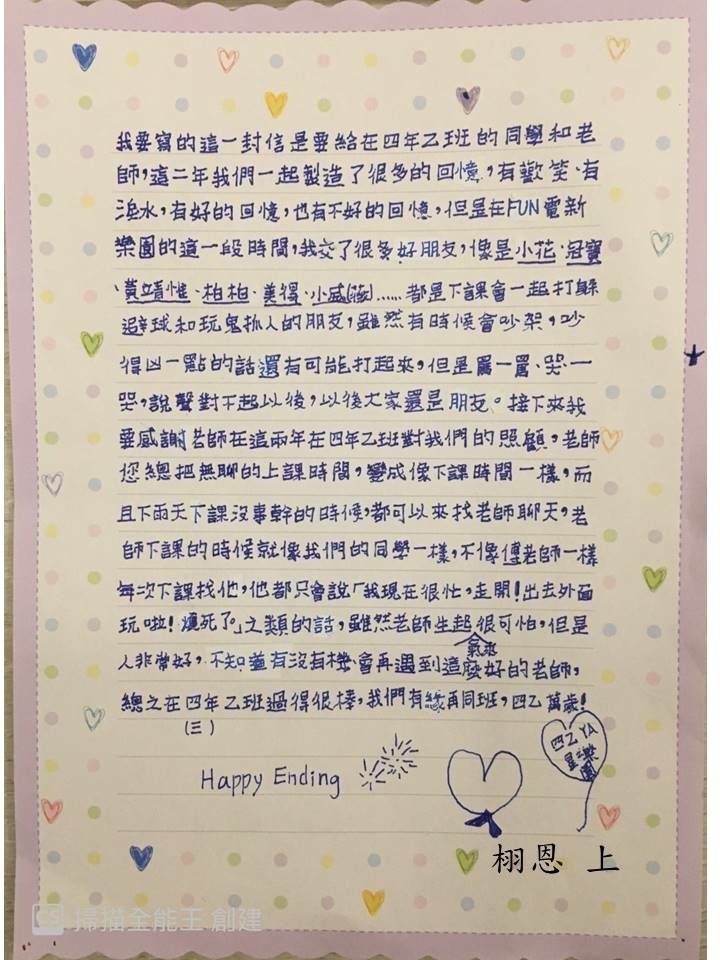 我要寫的這一封信是要給在四年乙班的同學和老
師,這二年我們一起製造了很多的回憶,有歡笑、有
淚水,有好的回憶,也有不好的回憶,但是在FUN電新
樂園的這一段時間,我交了很多好朋友,像是小花、冠寶
、黃靖惟、柏柏、美得、小威……都是下課會一起打躲
避球和玩鬼抓人的朋友,雖然有時候會吵架,吵
得凶一點的話還有可能打起來,但是罵一罵、哭一
哭,說聲對不起以後,以後大家還是朋友。接下來我
要感謝老師在這兩年在四年乙班對我們的照顧,老師
您總把無聊的上課時間,變成像下課時間一樣,而
且下雨天下課沒事幹的時候,都可以來找老師聊天,老
師下課的時候就像我們的同學一樣,不像傅老師一樣
每次下課找他,他都只會說「我現在很忙,走開!出去外面
玩啦!煩死了。」之類的話,雖然老師生起很可怕,但是
氣來
人非常好,不知道有沒有機會再遇到這麼好的老師,
總之在四年乙班過得很棒,我們有緣再同班,四乙萬歲!
(三)
Happy Ending
四乙YA
星樂園
栩恩 上
CS 掃描全能王 創建